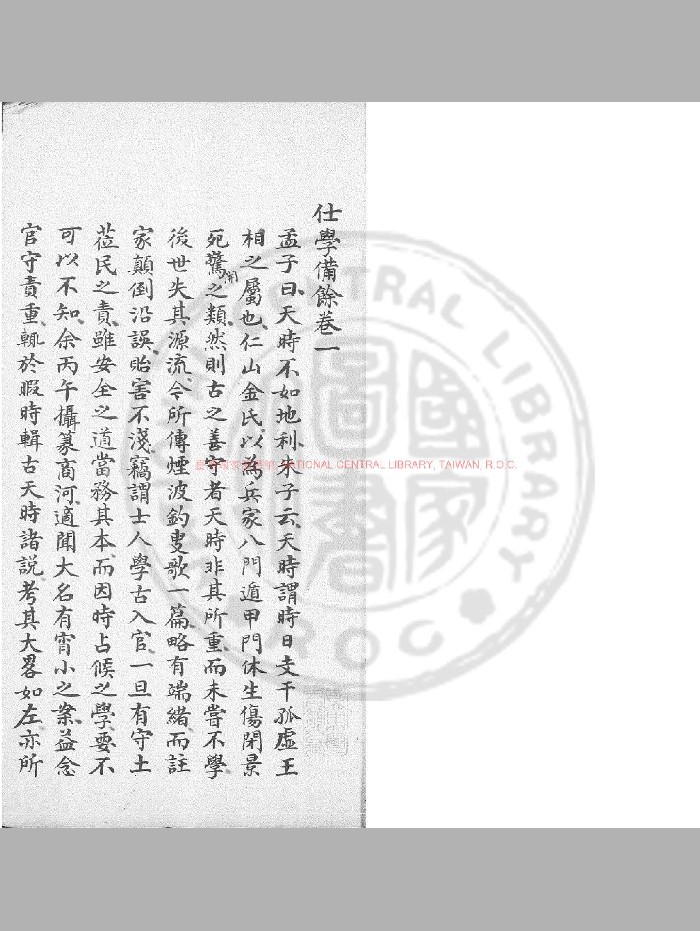 仕學備餘卷一
孟子曰天時不如地利朱子云天時謂時日支干孤虛王
相之屬也仁山金氏以為兵家八門遁甲門休生傷閉景
死驚開之類然則古之善守者天時非其所重而未嘗不學
後世失其源流今所傳煙波釣叟歌一篇略有端緒而註
家顛倒沿誤貽害不淺竊謂士人學古入官一旦有守土
蒞民之責雖安全之道當務其本而因時占候之學要不
可以不知余丙午攝篆商河適聞大名有宵小之案益念
官守責重輒於暇時輯古天時諸說考其大畧如左亦所
NATIONAL CENTRAL LIBRARY, TAIWAN, R.O.C.